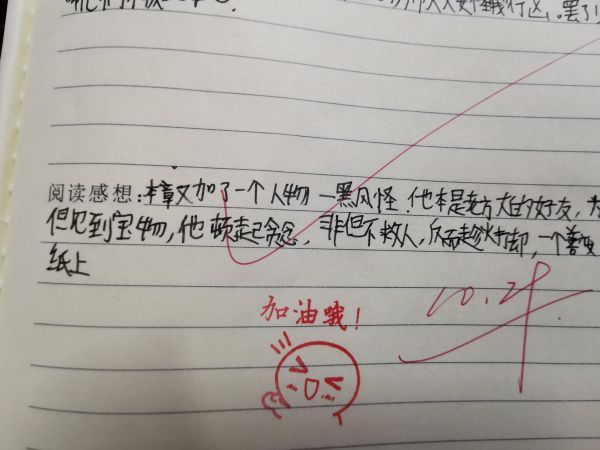 罢了
阅读感想:本章又加了一个人物—黑风怪.他本是老方丈的好友,
但见到宝物,他顿起贪念,非但不救人,反而趁火打劫,一个善变
纸上
加油哦!